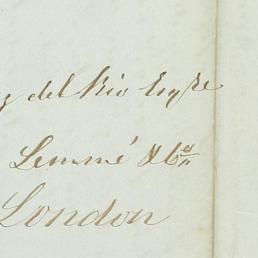 y del Rio Esqre
Lemmé & Co
London